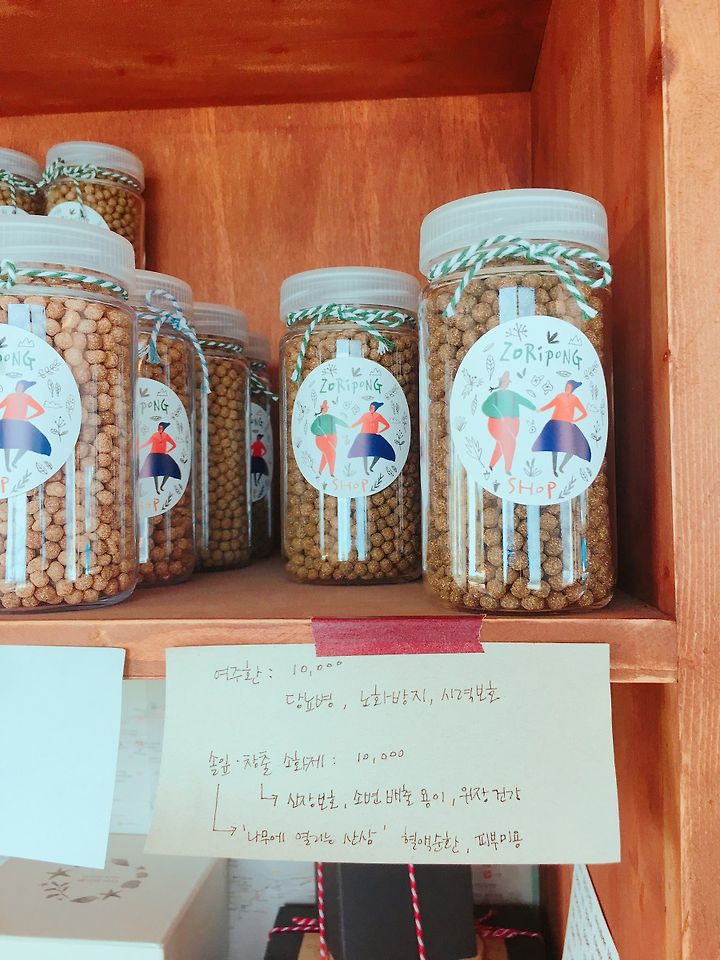 ZORIPONG
SHOP
ZORIPONG
SHOP
PONG
여주환 : 10,000
당뇨병, 노화방지, 시력보호
솔잎·창출 소화제 : 10,000
심장보호, 소변 배출 용이, 위장 건강
'나무에 열리는 산삼' 혈액순환, 피부미용